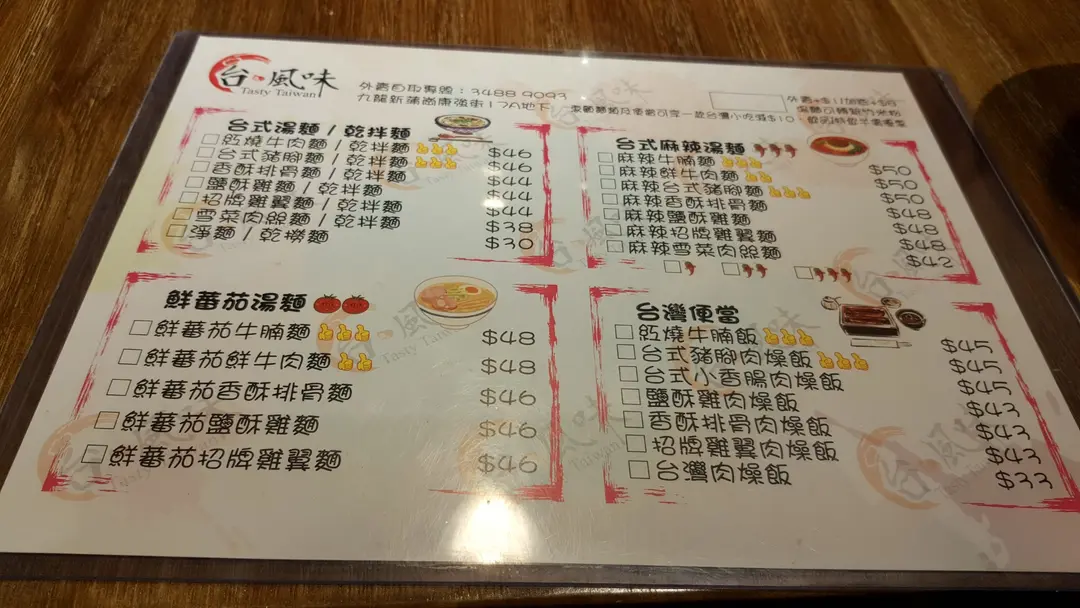 台·風味
Tasty Taiwan
外賣自取專線：3488 9093
九龍新蒲崗康強街17A地下
台式湯麵 / 乾拌麵
紅燒牛肉麵 / 乾拌麵 $46
台式豬腳麵 / 乾拌麵 $46
香酥排骨麵 / 乾拌麵 $44
鹽酥雞麵 / 乾拌麵 $44
招牌雞翼麵 / 乾拌麵 $44
雪菜肉絲麵 / 乾拌麵 $38
淨麵 / 乾撈麵 $30
台式麻辣湯麵
麻辣牛腩麵 $50
麻辣鮮牛肉麵 $50
麻辣台式豬腳麵 $50
麻辣香酥排骨麵 $48
麻辣鹽酥雞麵 $48
麻辣招牌雞翼麵 $48
麻辣雪菜肉絲麵 $42
鮮蕃茄湯麵
鮮蕃茄牛腩麵 $48
鮮蕃茄鮮牛肉麵 $48
鮮蕃茄香酥排骨麵 $46
鮮蕃茄鹽酥雞麵 $46
鮮蕃茄招牌雞翼麵 $46
台灣便當
紅燒牛腩飯 $45
台式豬腳肉燥飯 $45
台式小香腸肉燥飯 $45
鹽酥雞肉燥飯 $43
香酥排骨肉燥飯 $43
招牌雞翼肉燥飯 $43
台灣肉燥飯 $33